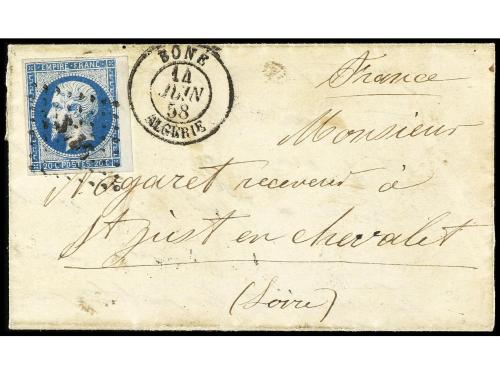 EMPIRE FRANC.
20 c. POSTES 20 c.
BONE
14
JUIN
58
ALGERIE
France
Monsieur
Nogaret receveur à
St just en chevalet
(Loire)